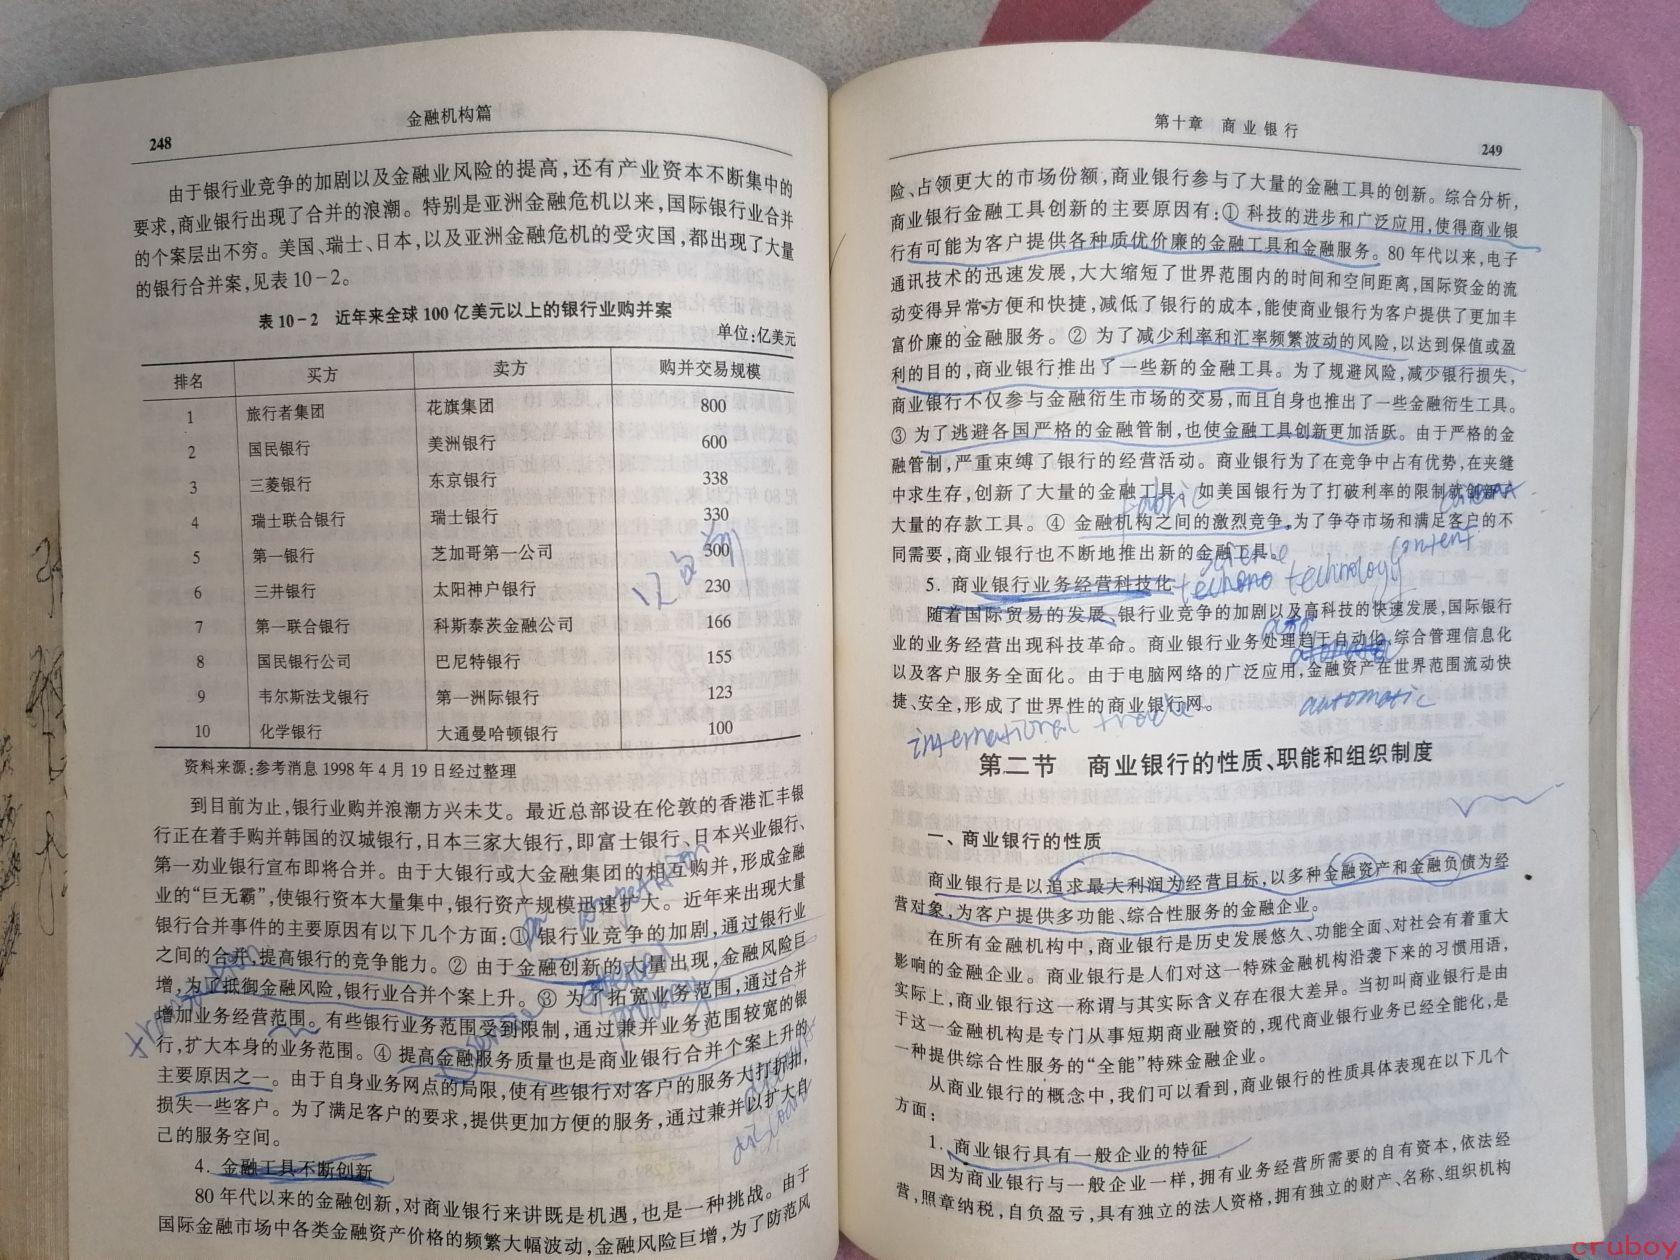 248
金融机构篇
由于银行业竞争的加剧以及金融业风险的提高，还有产业资本不断集中的
要求，商业银行出现了合并的浪潮。特别是亚洲金融危机以来，国际银行业合并
的个案层出不穷。美国、瑞士、日本，以及亚洲金融危机的受灾国，都出现了大量
的银行合并案，见表10-2。
表10-2 近年来全球100亿美元以上的银行业购并案
单位：亿美元
排名 买方 卖方 购并交易规模
1 旅行者集团 花旗集团 800
2 国民银行 美洲银行 600
3 三菱银行 东京银行 338
4 瑞士联合银行 瑞士银行 330
5 第一银行 芝加哥第一公司 300
6 三井银行 太阳神户银行 230
7 第一联合银行 科斯泰茨金融公司 166
8 国民银行公司 巴尼特银行 155
9 韦尔斯法戈银行 第一洲际银行 123
10 化学银行 大通曼哈顿银行 100
资料来源：参考消息1998年4月19日经过整理
到目前为止，银行业购并浪潮方兴未艾。最近总部设在伦敦的香港汇丰银
行正在着手购并韩国的汉城银行，日本三家大银行，即富士银行、日本兴业银行、
第一劝业银行宣布即将合并。由于大银行或大金融集团的相互购并，形成金融
业的“巨无霸”，使银行资本大量集中，银行资产规模迅速扩大。近年来出现大量
银行合并事件的主要原因有以下几个方面：① 银行业竞争的加剧，通过银行业
之间的合并，提高银行的竞争能力。② 由于金融创新的大量出现，金融风险巨
增，为了抵御金融风险，银行业合并个案上升。③ 为了拓宽业务范围，通过合并
增加业务经营范围。有些银行业务范围受到限制，通过兼并业务范围较宽的银
行，扩大本身的业务范围。④ 提高金融服务质量也是商业银行合并个案上升的
主要原因之一。由于自身业务网点的局限，使有些银行对客户的服务大打折扣，
损失一些客户。为了满足客户的要求，提供更加方便的服务，通过兼并以扩大自
己的服务空间。
4. 金融工具不断创新
80年代以来的金融创新，对商业银行来讲既是机遇，也是一种挑战。由于
国际金融市场中各类金融资产价格的频繁大幅波动，金融风险巨增，为了防范风
第十章 商业银行
249
险、占领更大的市场份额，商业银行参与了大量的金融工具的创新。综合分析，
商业银行金融工具创新的主要原因有：① 科技的进步和广泛应用，使得商业银
行有可能为客户提供各种质优价廉的金融工具和金融服务。80年代以来，电子
通讯技术的迅速发展，大大缩短了世界范围内的时间和空间距离，国际资金的流
动变得异常方便和快捷，减低了银行的成本，能使商业银行为客户提供了更加丰
富价廉的金融服务。② 为了减少利率和汇率频繁波动的风险，以达到保值或盈
利的目的，商业银行推出了一些新的金融工具。为了规避风险，减少银行损失，
商业银行不仅参与金融衍生市场的交易，而且自身也推出了一些金融衍生工具。
③ 为了逃避各国严格的金融管制，也使金融工具创新更加活跃。由于严格的金
融管制，严重束缚了银行的经营活动。商业银行为了在竞争中占有优势，在夹缝
中求生存，创新了大量的金融工具。如美国银行为了打破利率的限制就创新
大量的存款工具。④ 金融机构之间的激烈竞争。为了争夺市场和满足客户的不
fabric
同需要，商业银行也不断地推出新的金融工具。
content
5. 商业银行业务经营科技化
techono technology
随着国际贸易的发展、银行业竞争的加剧以及高科技的快速发展，国际银行
业的业务经营出现科技革命。商业银行业务处理趋于自动化，综合管理信息化
以及客户服务全面化。由于电脑网络的广泛应用，金融资产在世界范围流动快
捷、安全，形成了世界性的商业银行网。
automatic
international trade
第二节 商业银行的性质、职能和组织制度
一、商业银行的性质
商业银行是以追求最大利润为经营目标，以多种金融资产和金融负债为经
营对象，为客户提供多功能、综合性服务的金融企业。
在所有金融机构中，商业银行是历史发展悠久、功能全面、对社会有着重大
影响的金融企业。商业银行是人们对这一特殊金融机构沿袭下来的习惯用语，
实际上，商业银行这一称谓与其实际含义存在很大差异。当初叫商业银行是由
于这一金融机构是专门从事短期商业融资的，现代商业银行业务已经全能化，是
一种提供综合性服务的“全能”特殊金融企业。
从商业银行的概念中，我们可以看到，商业银行的性质具体表现在以下几个
方面：
1. 商业银行具有一般企业的特征
因为商业银行与一般企业一样，拥有业务经营所需要的自有资本，依法经
营，照章纳税，自负盈亏，具有独立的法人资格，拥有独立的财产、名称、组织机构
cruboy